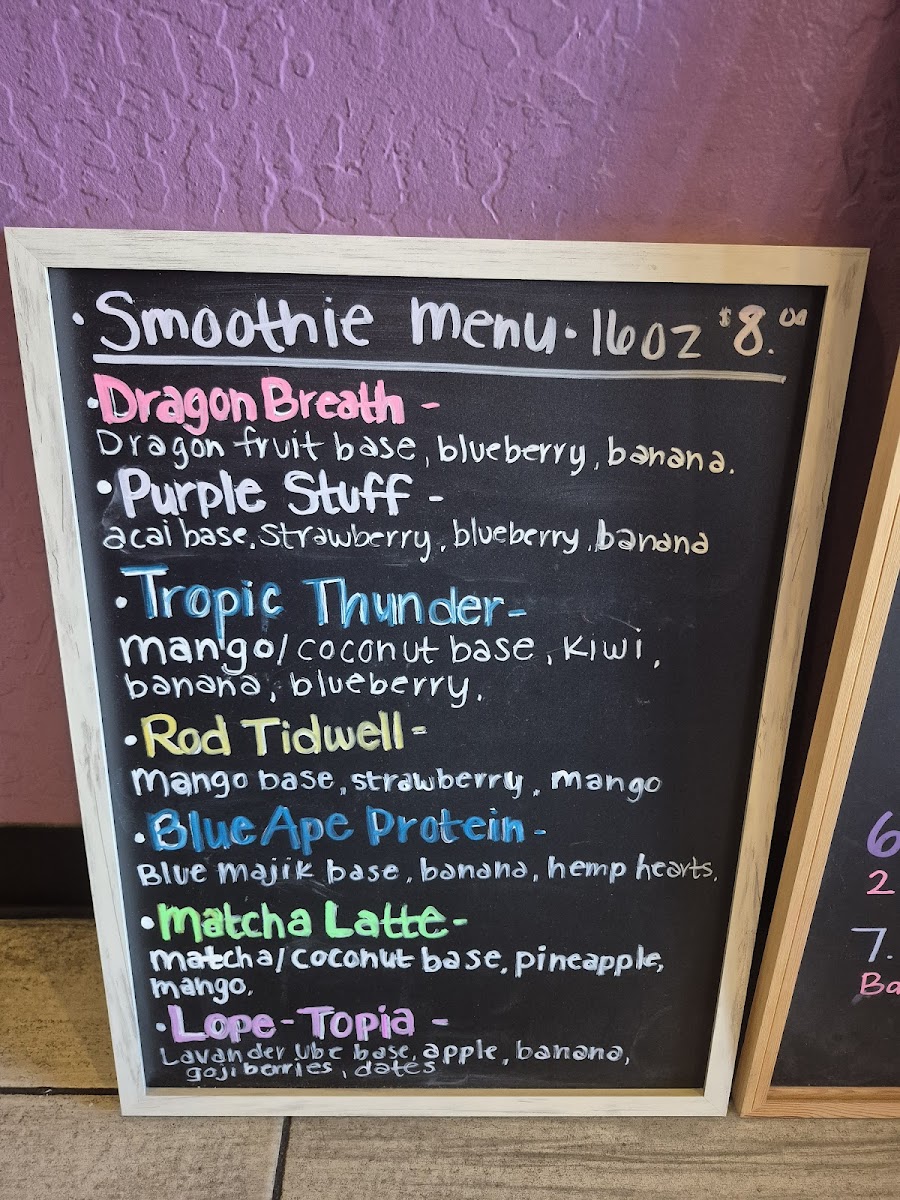 • Smoothie menu • 16oz $8.00
• Dragon Breath -
Dragon fruit base, blueberry, banana.
• Purple Stuff -
acai base, strawberry, blueberry, banana
• Tropic Thunder -
mango/coconut base, kiwi,
banana, blueberry.
• Rod Tidwell -
mango base, strawberry, mango
• Blue Ape Protein -
Blue majik base, banana, hemp hearts.
• Matcha Latte -
matcha/coconut base, pineapple,
mango.
• Lope-Topia -
Lavander ube base, apple, banana,
goji berries, dates
6
2
7.
Ba